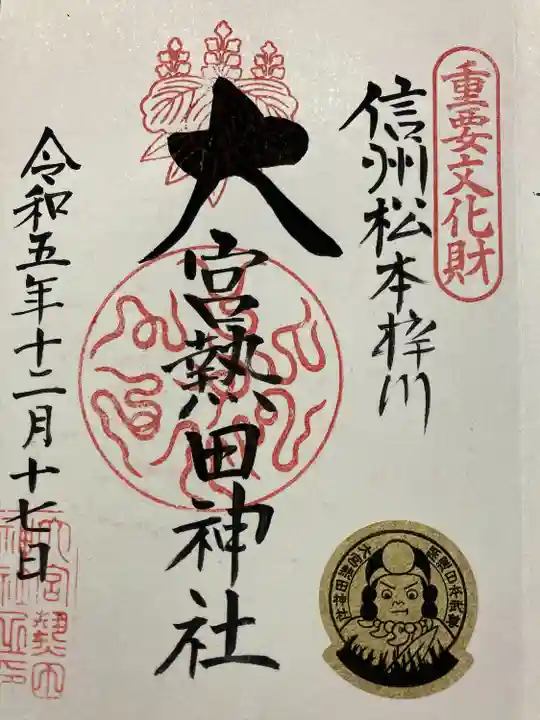 重要文化財
信州松本梓川
大宮熱田神社
令和五年十二月十七日
大宮熱田神社